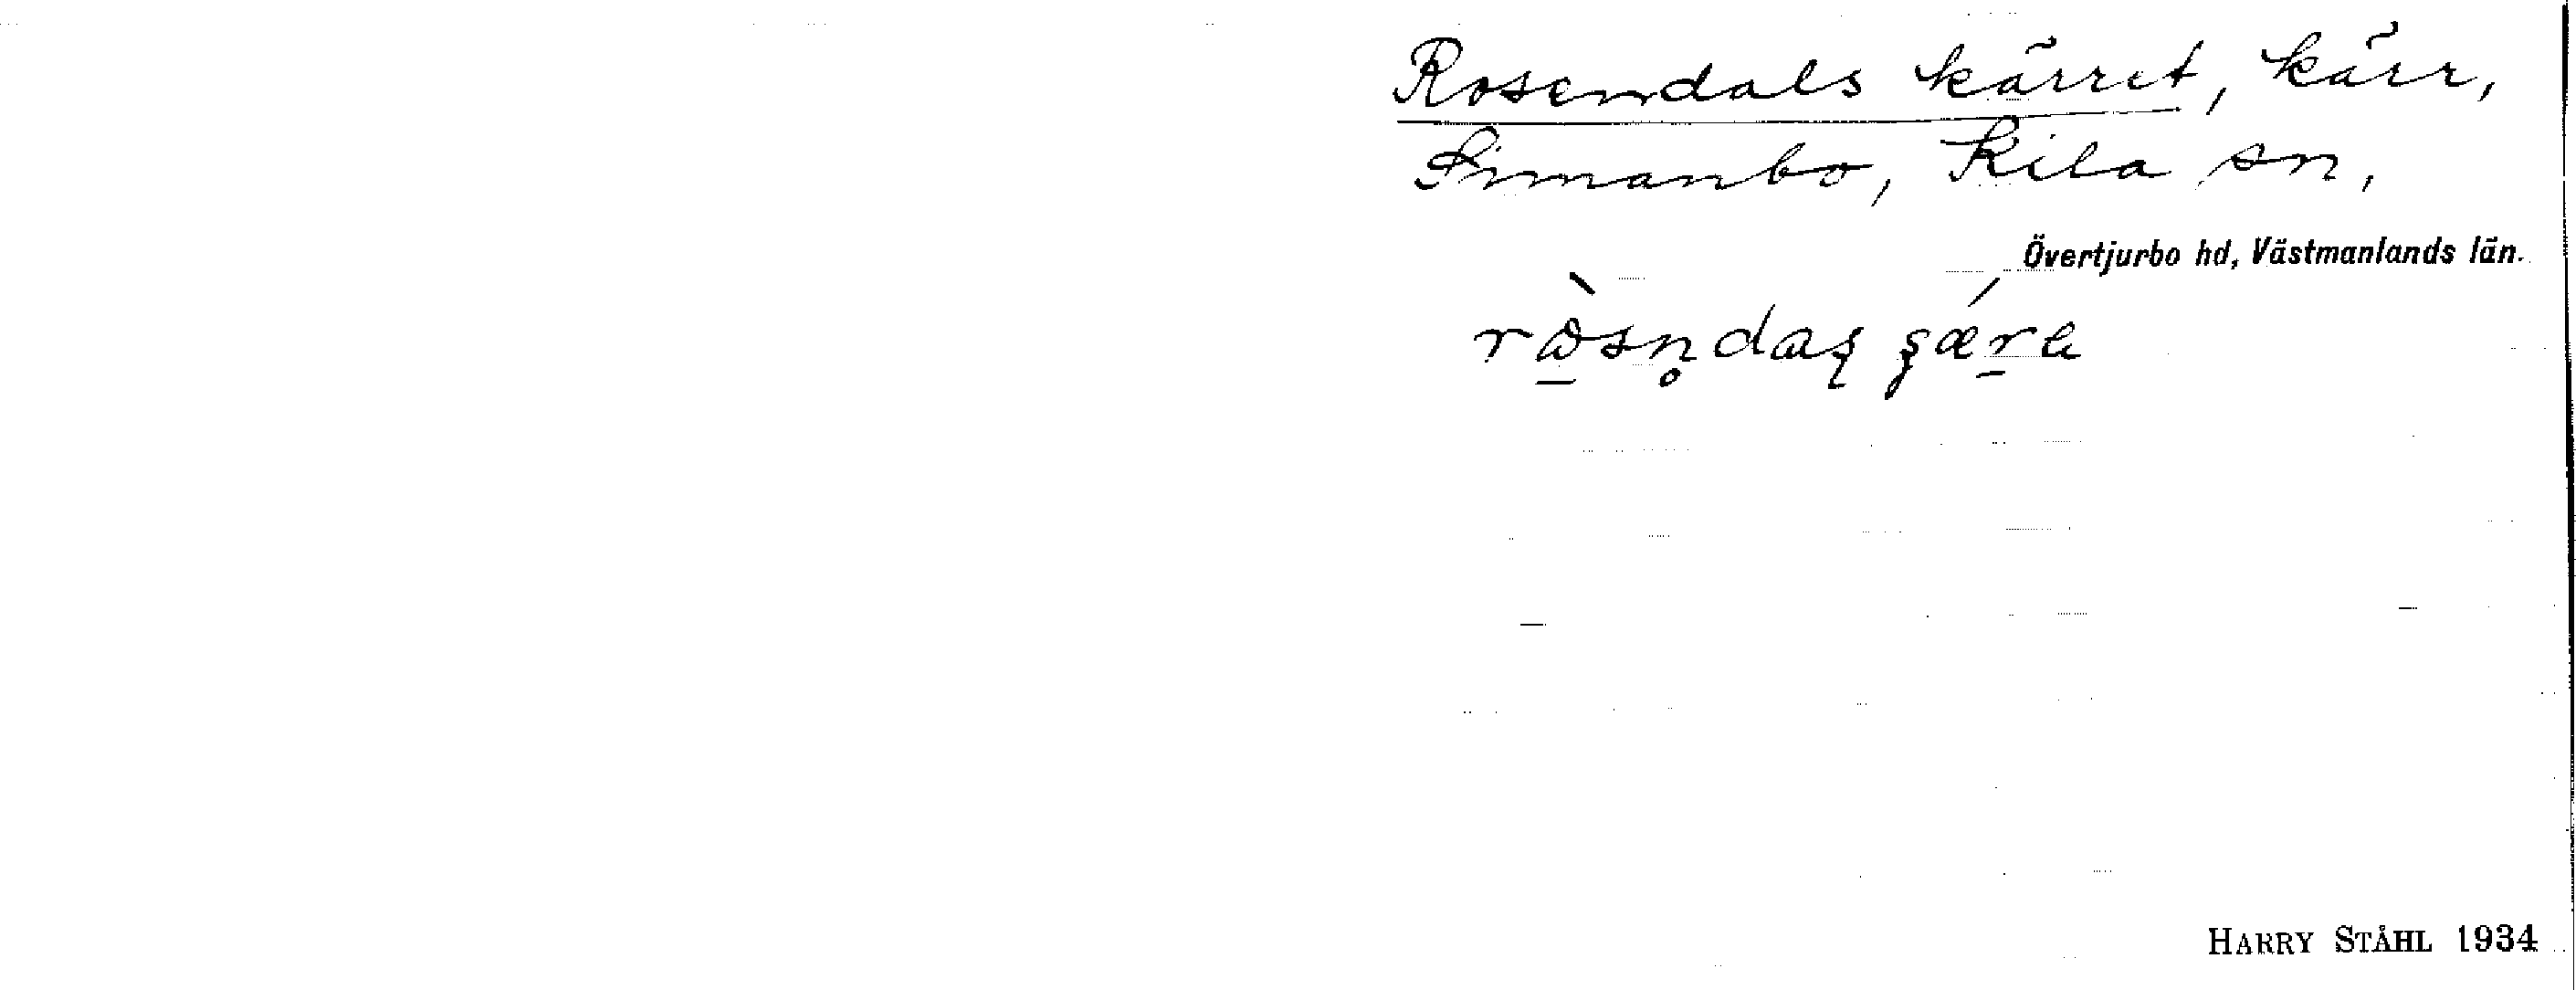 Rosendals kärret, kärr,
Simanbo, Kila sn,
Övertjurbo hd, Västmanlands län.
HARRY STÅHL 1934